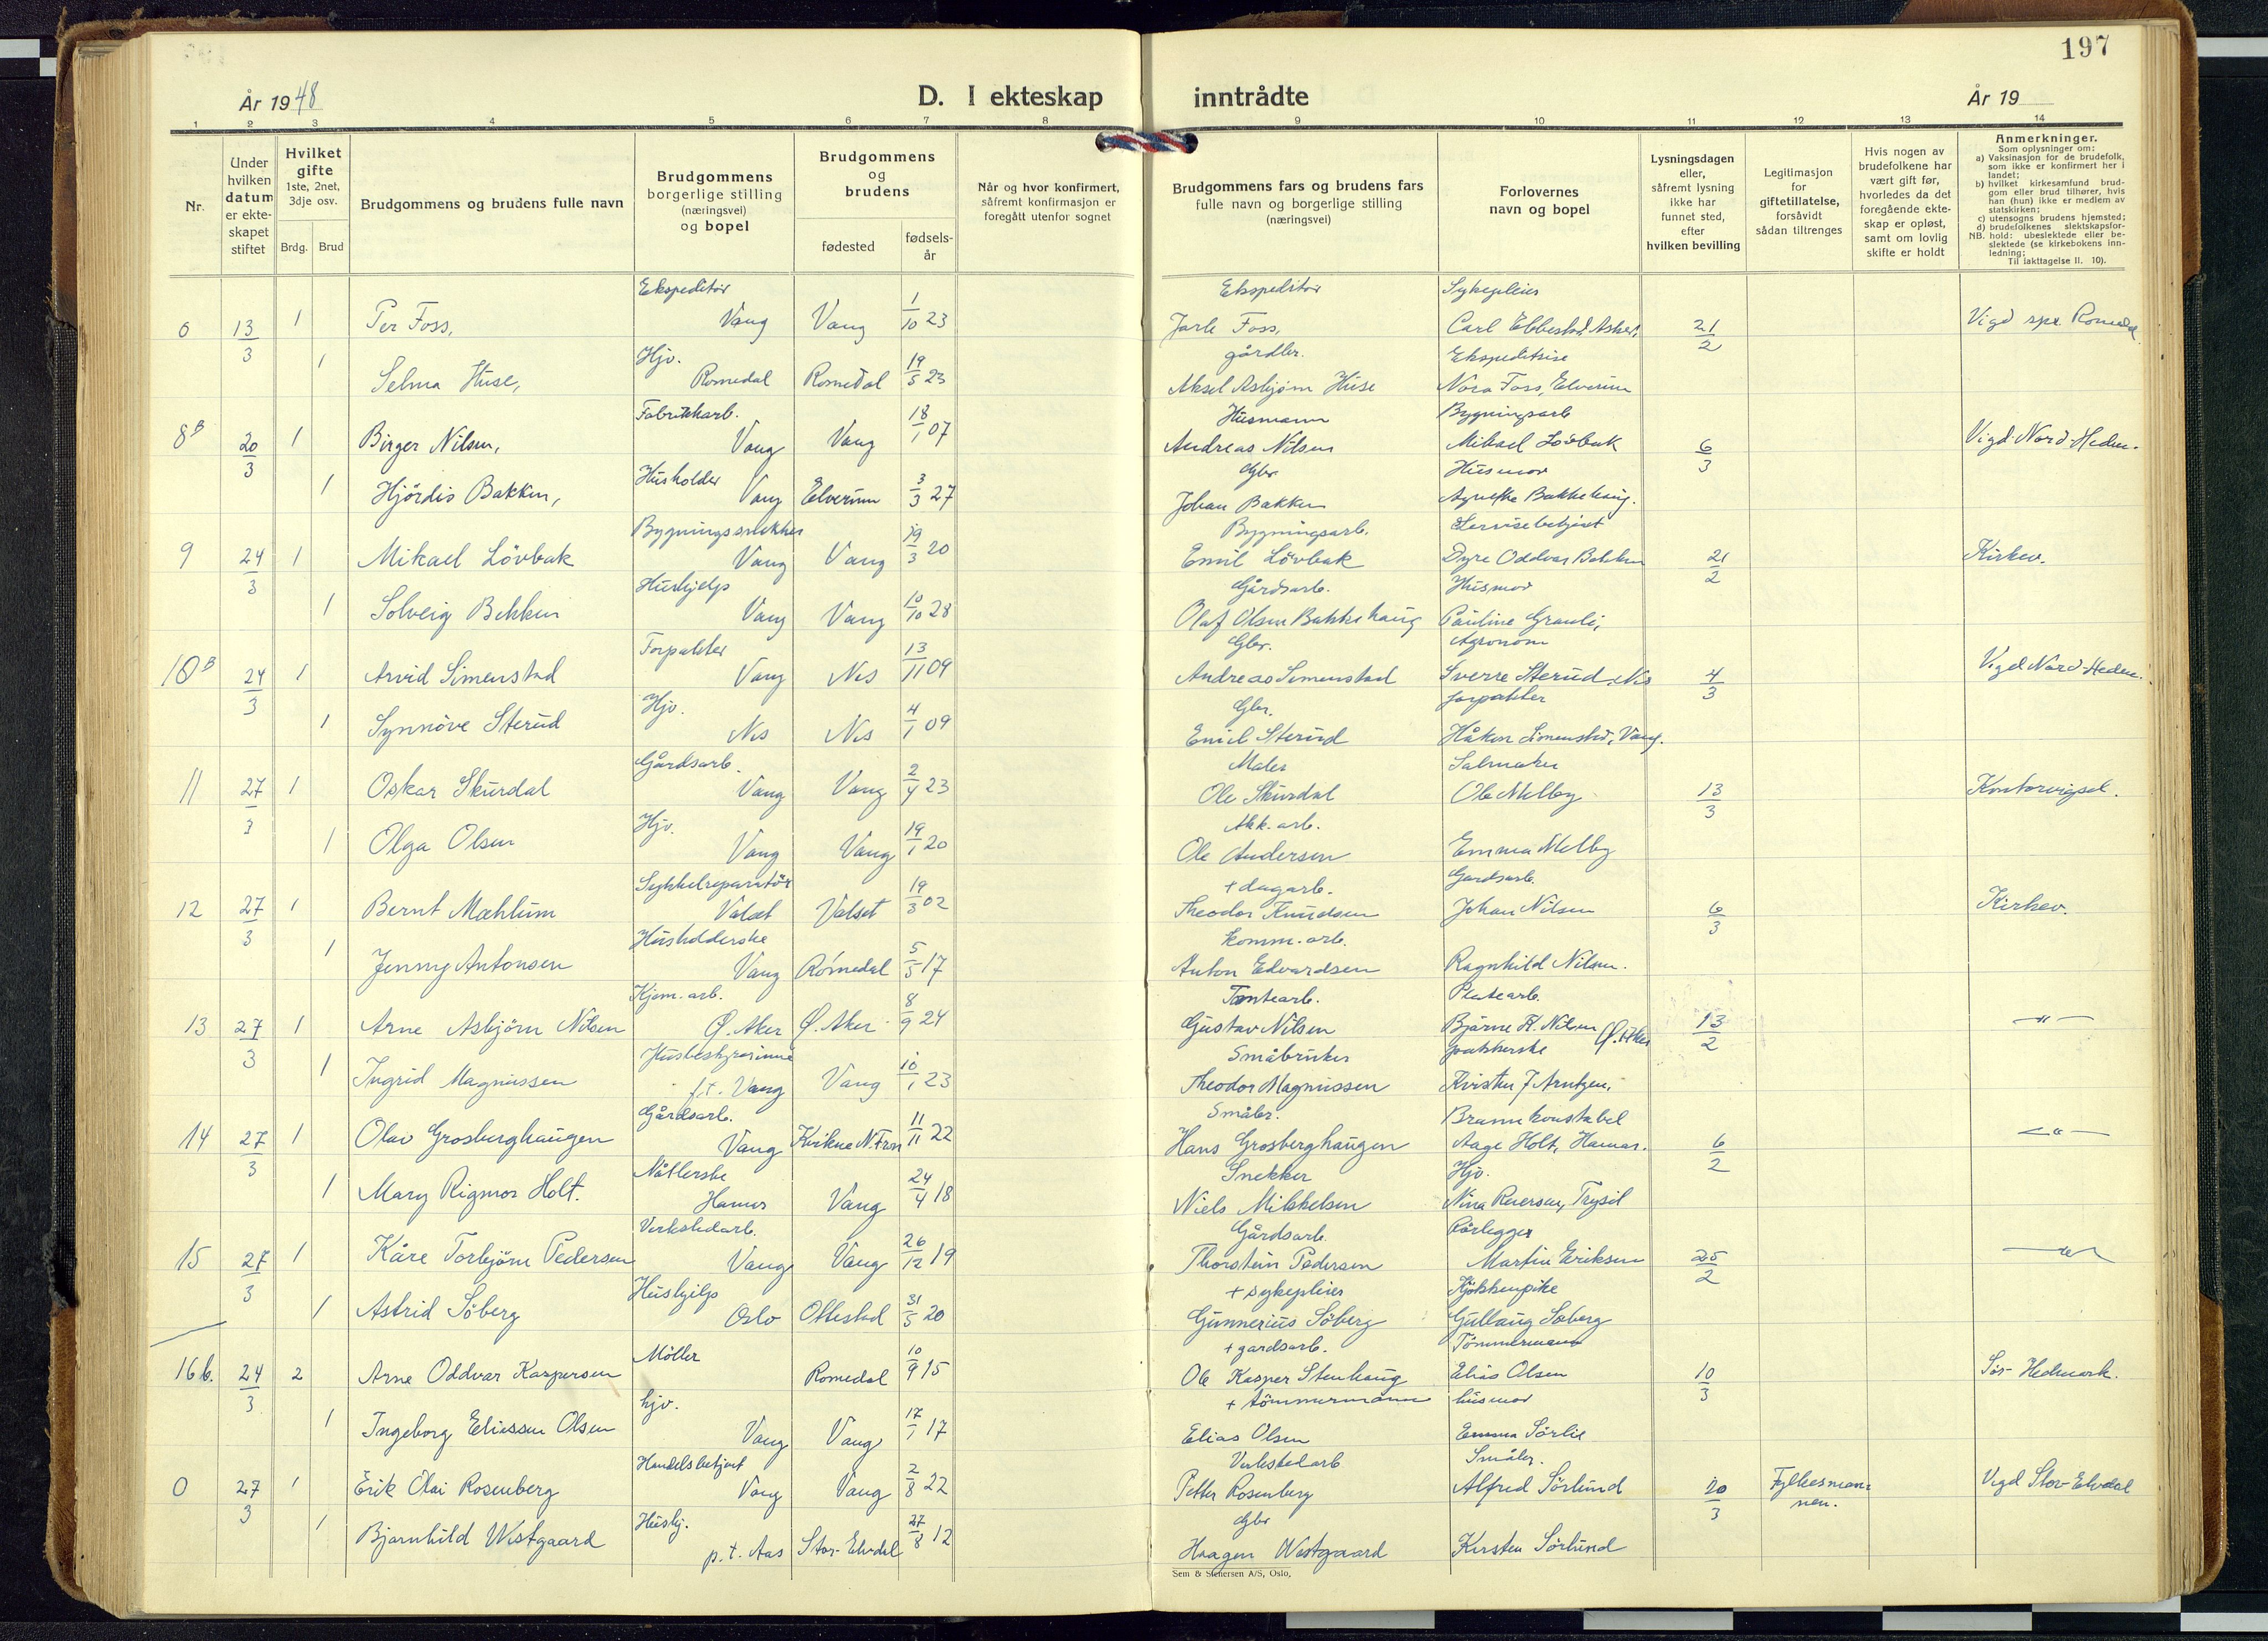 197
År 1948
D. I ekteskap inntrådte
År 19
1 2 3 4 5 6 7 8 9 10 11 12 13 14
Nr.
Under hvilken datum er ekteskapet stiftet
Hvilket gifte 1ste, 2net, 3dje osv.
Brdg. Brud
Brudgommens og brudens fulle navn
Brudgommens borgerlige stilling (næringsvei) og bopel
Brudgommens og brudens
fødested
fødselsår
Når og hvor konfirmert, såfremt konfirmasjon er foregått utenfor sognet
Brudgommens fars og brudens fars fulle navn og borgerlige stilling (næringsvei)
Forlovernes navn og bopel
Lysningsdagen eller, såfremt lysning ikke har funnet sted, efter hvilken bevilling
Legitimasjon for giftetillatelse, forsåvidt sådan tiltrenges
Hvis nogen av brudefolkene har vært gift før, hvorledes da det foregående ekteskap er opløst, samt om lovlig skifte er holdt
Anmerkninger.
Som oplysninger om:
a) Vaksinasjon for de brudefolk, som ikke er konfirmert her i landet;
b) hvilket kirkesamfund brudgom eller brud tilhører, hvis han (hun) ikke er medlem av statskirken;
c) utensogns brudens hjemsted;
d) brudefolkenes slektskapsforhold: ubeslektede eller beslektede (se kirkebokens innledning;
NB.
Til iakttagelse II. 10).
Ekspeditör Ekspeditör Sykepleier
0 13/3 1 Per Foss, Vang Vang 1/10 23 Jarle Foss, Carl Ebbestad 21/2 Vigd Romedal
Hjv. gårdbr. Ekspeditrise
1 Selma Huse, Romedal Romedal 19/5 23 Aksel Asbjørn Huse Nora Foss, Elverum
Fabrikkarb. Husmann Bygningsarb
8B 20/3 1 Birger Nilsen, Vang Vang 18/1 07 Andreas Nilsen Mikael Lövbak 6/3 Vigd. Nord-Hedm.
Husholder Gbr Husmor
1 Hjördis Bakken, Vang Elverum 3/3 27 Johan Bakken Bakkehaug.
Bygningssnekker Bygningsarb. Servisebetjent
9 24/3 1 Mikael Lövbak Vang Vang 19/3 20 Emil Lövbak Dyre Oddvar Bakken 21/2 Kirkev.
Hushjelp Gårdsarb. Husmor
1 Solveig Bekken Vang Vang 10/10 28 Olaf Olsen Bakkehaug Pauline
Forpakter Gbr. Agronom
10B 24/3 1 Arvid Simenstad Vang Nes 13/11 09 Andreas Simenstad Sverre Sterud, Nes 4/3 Vigd Nord-Hedm.
Hjv. Gbr. forpakter
1 Synnöve Sterud Nes Nes 4/1 09 Emil Sterud Håkon Simenstad, Vang.
Gårdsarb. Maler Salmaker
11 27/3 1 Oskar Skurdal Vang Vang 2/4 23 Ole Skurdal Ole Melby 13/3 Kontorvigsel.
Hjv. Akk. arb.
1 Olga Olsen Vang Vang 19/1 20 Ole Andersen Emma Melby
Sykkelreparatör + dagarb. Gardsarb.
12 27/3 1 Bernt Mæhlum Valset Valset 19/3 02 Theodor Knudsen Johan Nilsen 6/3 Kirkev.
Husholderske komm. arb.
1 Jenny Antonsen Vang Romedal 5/5 17 Anton Edvardsen Ragnhild Nilsen.
Kjem. arb. Tomtearb. Platearb.
13 27/3 1 Arne Asbjörn Nilsen Ø. Aker Ø. Aker 8/9 24 Gustav Nilsen Bjarne R. Nilsen Ø. Aker 13/2 —"—
Husbestyrerinne Småbruker pakkerske
1 Ingrid Magnussen f.t. Vang Vang 10/1 23 Theodor Magnussen Kristen J Arntzen,
Gårdsarb. Småbr. Brannkonstabel
14 27/3 1 Olav Grosberghaugen Vang Kvikne N. Fron 11/11 22 Hans Grosberghaugen Aage Holt, Hamar. 6/2 —"—
Nåtlerske Snekker Hjv.
1 Mary Rigmor Holt. Hamar Vang 24/4 18 Niels Mikkelsen Nina Reiersen, Trysil
Verkstedarb. Gårdsarb. Rörlegger
15 27/3 1 Kåre Torbjörn Pedersen Vang Vang 26/12 19 Thorstein Pedersen Martin Eriksen 25/2 —"—
Hushjelp + sykepleier Kjökkenpike
1 Astrid Söberg Oslo Ottestad 31/5 20 Gunnerius Söberg Gullaug Söberg
Möller + gardsarb. Tömmermann
16b. 24/3 2 Arne Oddvar Kaspersen Romedal 10/9 15 Ole Kasper Stenhaug Elias Olsen 10/3 Sør-Hedmark.
hjv. + tömmermann husmor
1 Ingeborg Eliassen Olsen Vang Vang 17/1 17 Elias Olsen Emma Sörlie
Handelsbetjent Verkstedarb Småbr.
0 27/3 1 Erik Olai Rosenberg Vang Vang 2/8 22 Petter Rosenberg Alfred Sörlund 20/3 Fylkesmannen. Vigd Stor-Elvdal
Hushj. Gbr
1 Bjarnhild Westgaard p.t. Aas Stor-Elvdal 27/8 12 Haagen Westgaard Kirsten Sörlund
Sem & Stenersen A/S, Oslo,